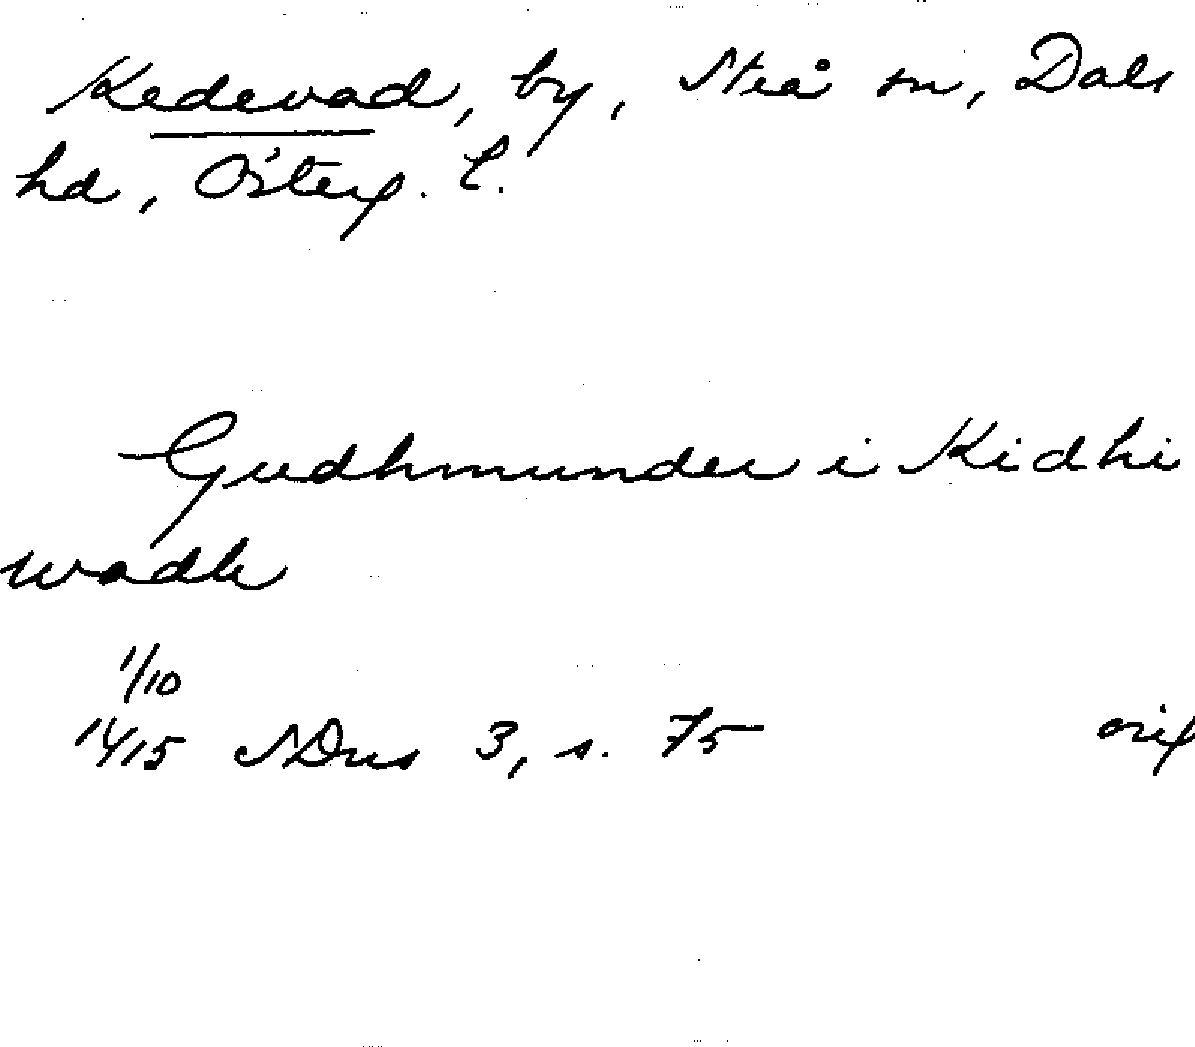 Kedevad, by, Steå sn, Dals
hd, Österg. l.
Gudhmunder i Kidhi
wadh
1/10
1415 SDns 3, s. 75 orig